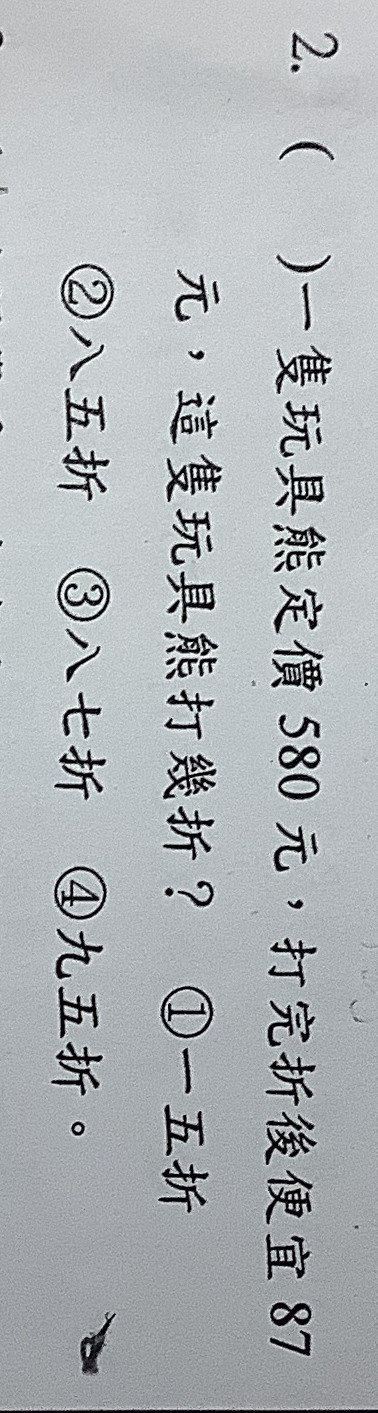 2. (　　)一隻玩具熊定價 580 元，打完折後便宜 87
元，這隻玩具熊打幾折？ ①一五折
②八五折 ③八七折 ④九五折。